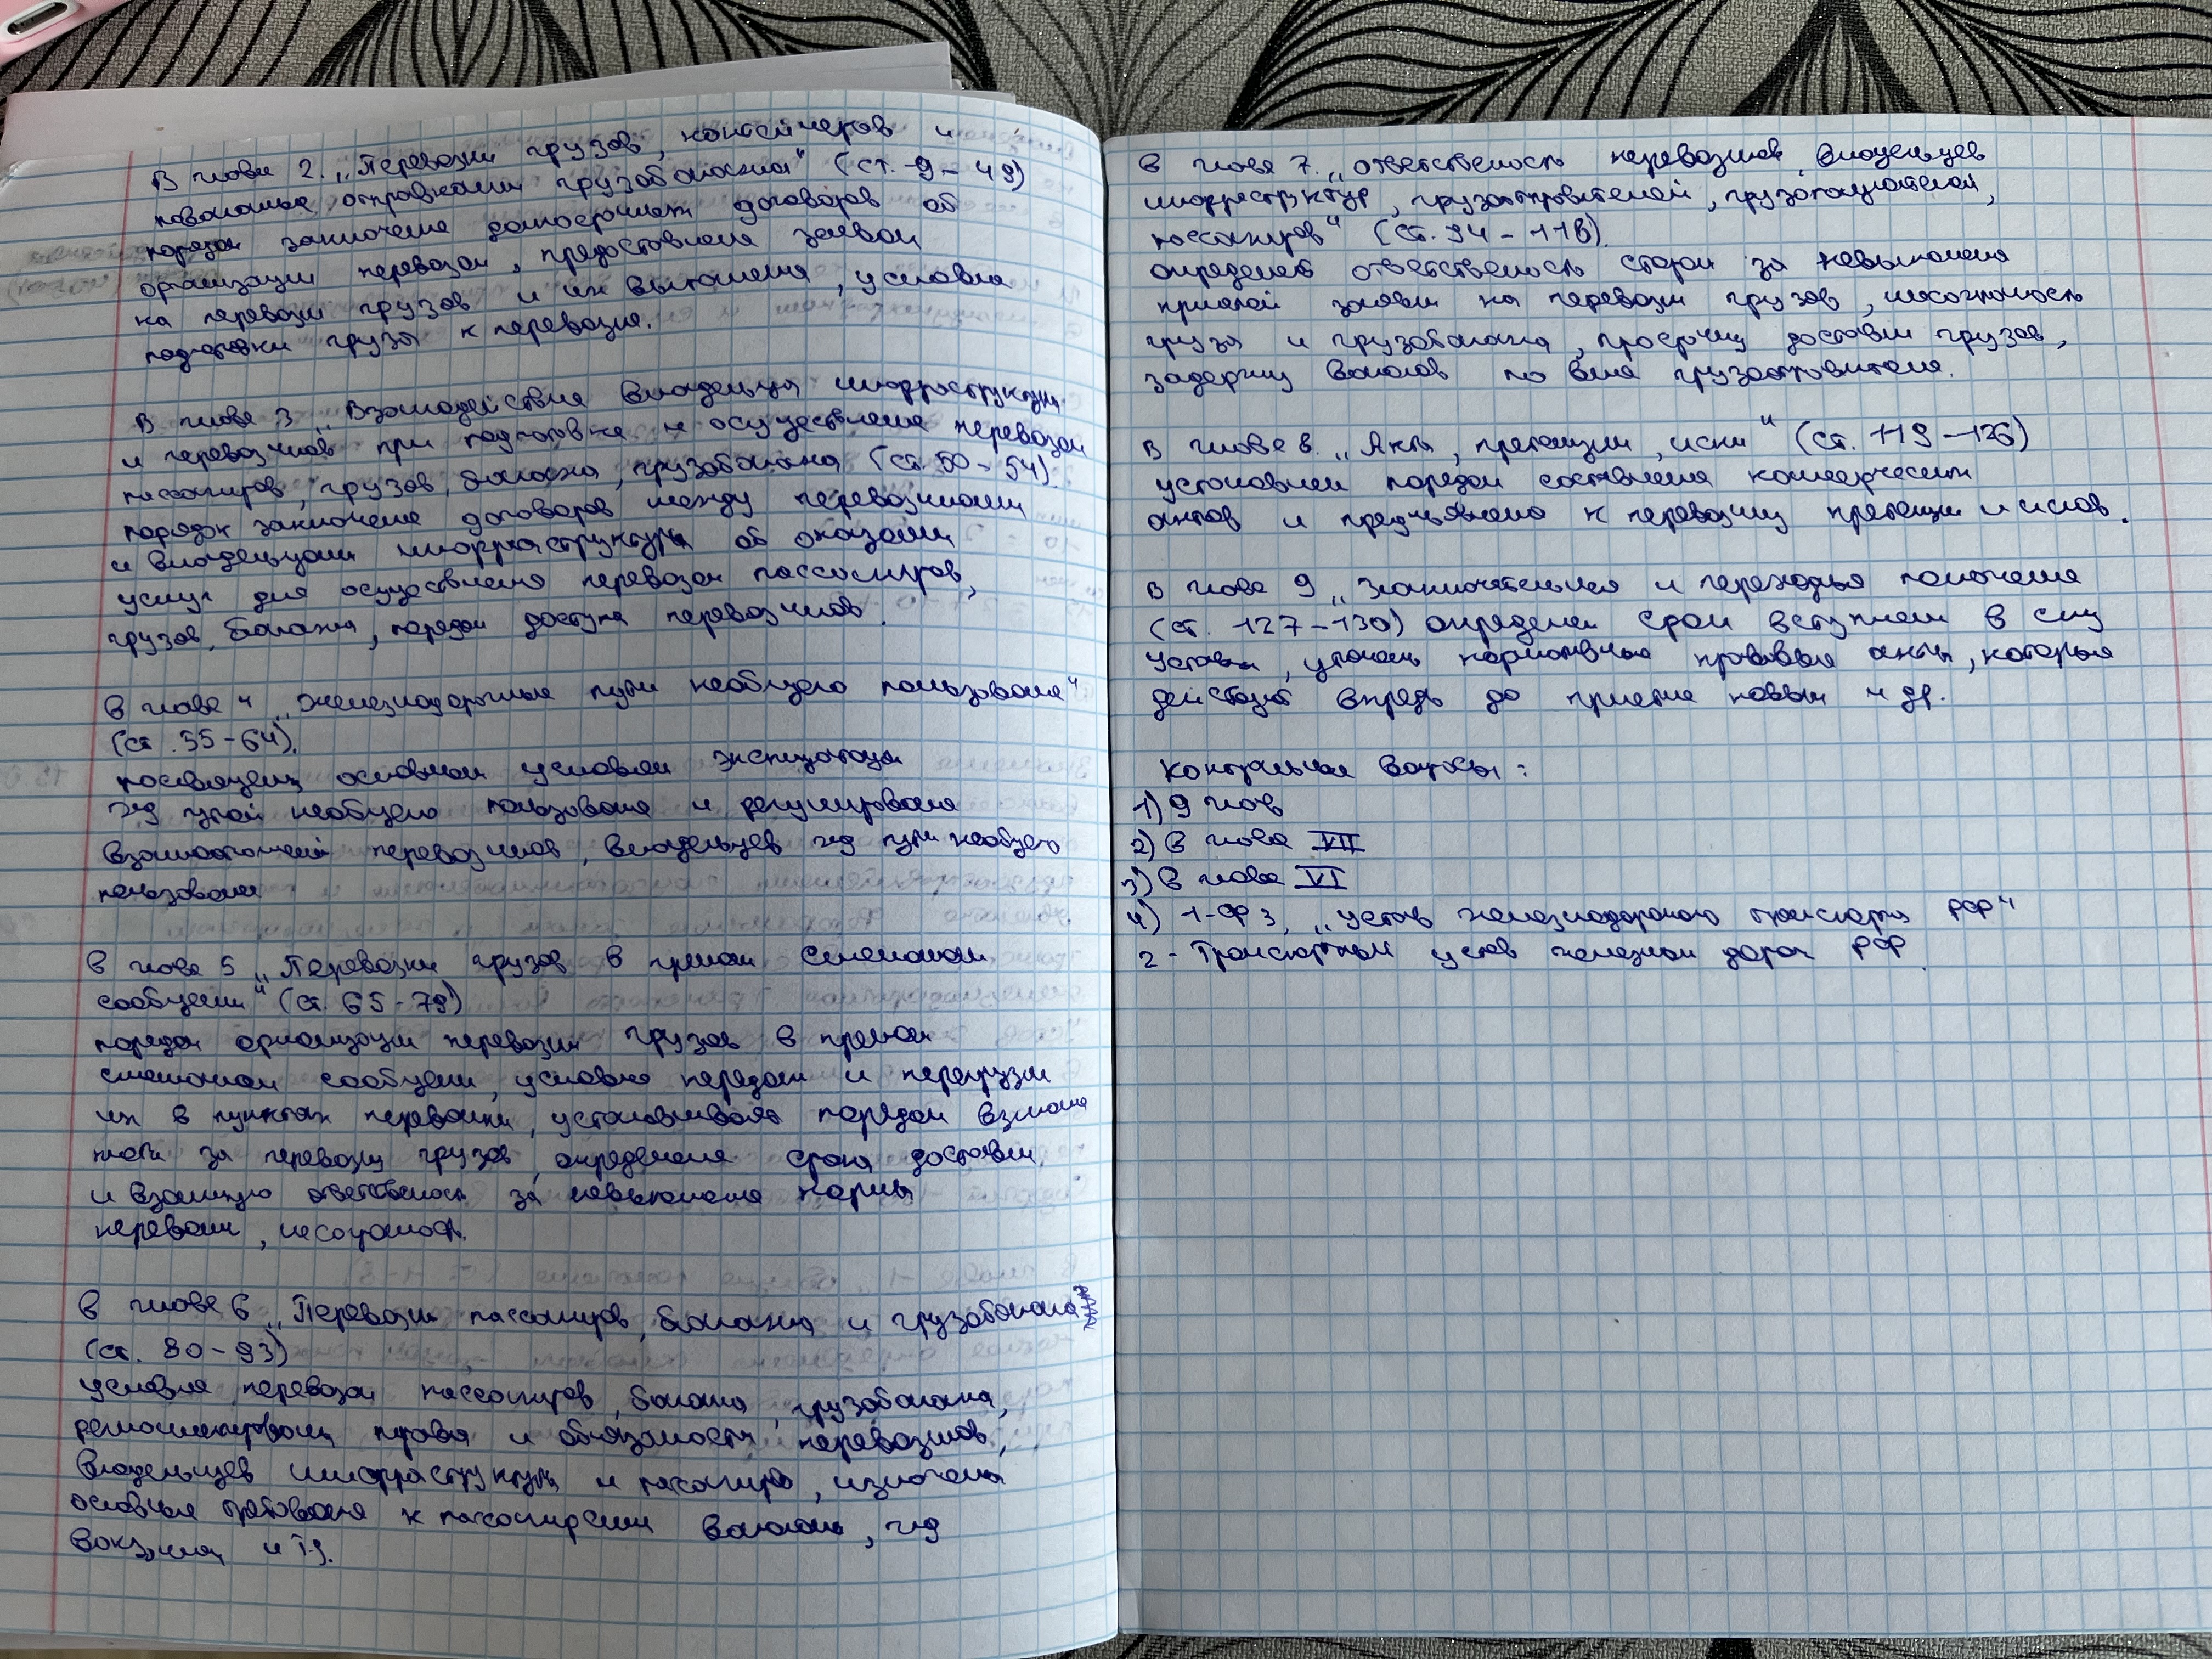 В главе 2. „Перевозки грузов, контейнеров и
повагонные отправками грузобагажа" (ст. -9 - 49)
порядок заключение долгосрочных договоров об
организации перевозок, предоставления заявок
на перевозки грузов и их выполнения, условия
подготовки груза к перевозке.
В главе 3 „Взаимодействия владельца инфраструктуры
и перевозчиков при подготовке и осуществление перевозок
пассажиров, грузов, багажа, грузобагажа (ст. 50 - 54)
порядок заключение договоров между перевозчиками
и владельцами инфраструктуры об оказании
услуг для осуществления перевозок пассажиров,
грузов, багажа, порядок доступа перевозчиков.
В главе 4 „Железнодорожные пути необщего пользования"
(ст. 55-64).
посвящены основным условиям эксплуатации
жд путей необщего пользования и регулирования
взаимоотношений перевозчиков, владельцев жд пути необщего
пользования
В главе 5 „Перевозки грузов в прямом смешанном
сообщении" (ст. 65-79)
порядок организации перевозки грузов в прямом
смешанном сообщении, условия передачи и перегрузки
их в пунктах перевалки, устанавливает порядок взимание
платы за перевозку грузов, определения срока доставки,
и взаимную ответственность за невыполнения нормы
перевалки, несохранность.
В главе 6 „Перевозки пассажиров, багажа и грузобагажа"
(ст. 80-93)
условия перевозки пассажиров, багажа, грузобагажа,
регламентированы права и обязанность перевозчиков,
владельцев инфраструктуры и пассажиров, изложены
основные требования к пассажирским вагонам, жд
вокзалам и т.д.
В глава 7. „Ответственость перевозчиков, владельцев
инфраструктур, грузоотправителей, грузополучателей,
пассажиров" (ст. 94 - 118).
определяет ответственость сторон за невыполнения
принятой заявки на перевозки грузов, несохранность
груза и грузобагажа, просрочку доставки грузов,
задержку вагонов по вине грузоотправителя.
В главе 8. „Акты, претензии, иски" (ст. 119 -126)
установлен порядок составления коммерческих
актов и предъявления к перевозчику претензии и исков.
В глава 9 „Заключительния и переходныя положение
(ст. 127-130) определен срок вступлении в силу
Устава, указаны нормативные правовые акты, которые
действуют впредь до принятие новых и др.
Контрольные вопросы:
1) 9 глав
2) В глава VII
3) В глава VI
4) 1-ФЗ, „устав железнодорожного транспорта РФ"
2- Транспортный устав железных дорог РФ.